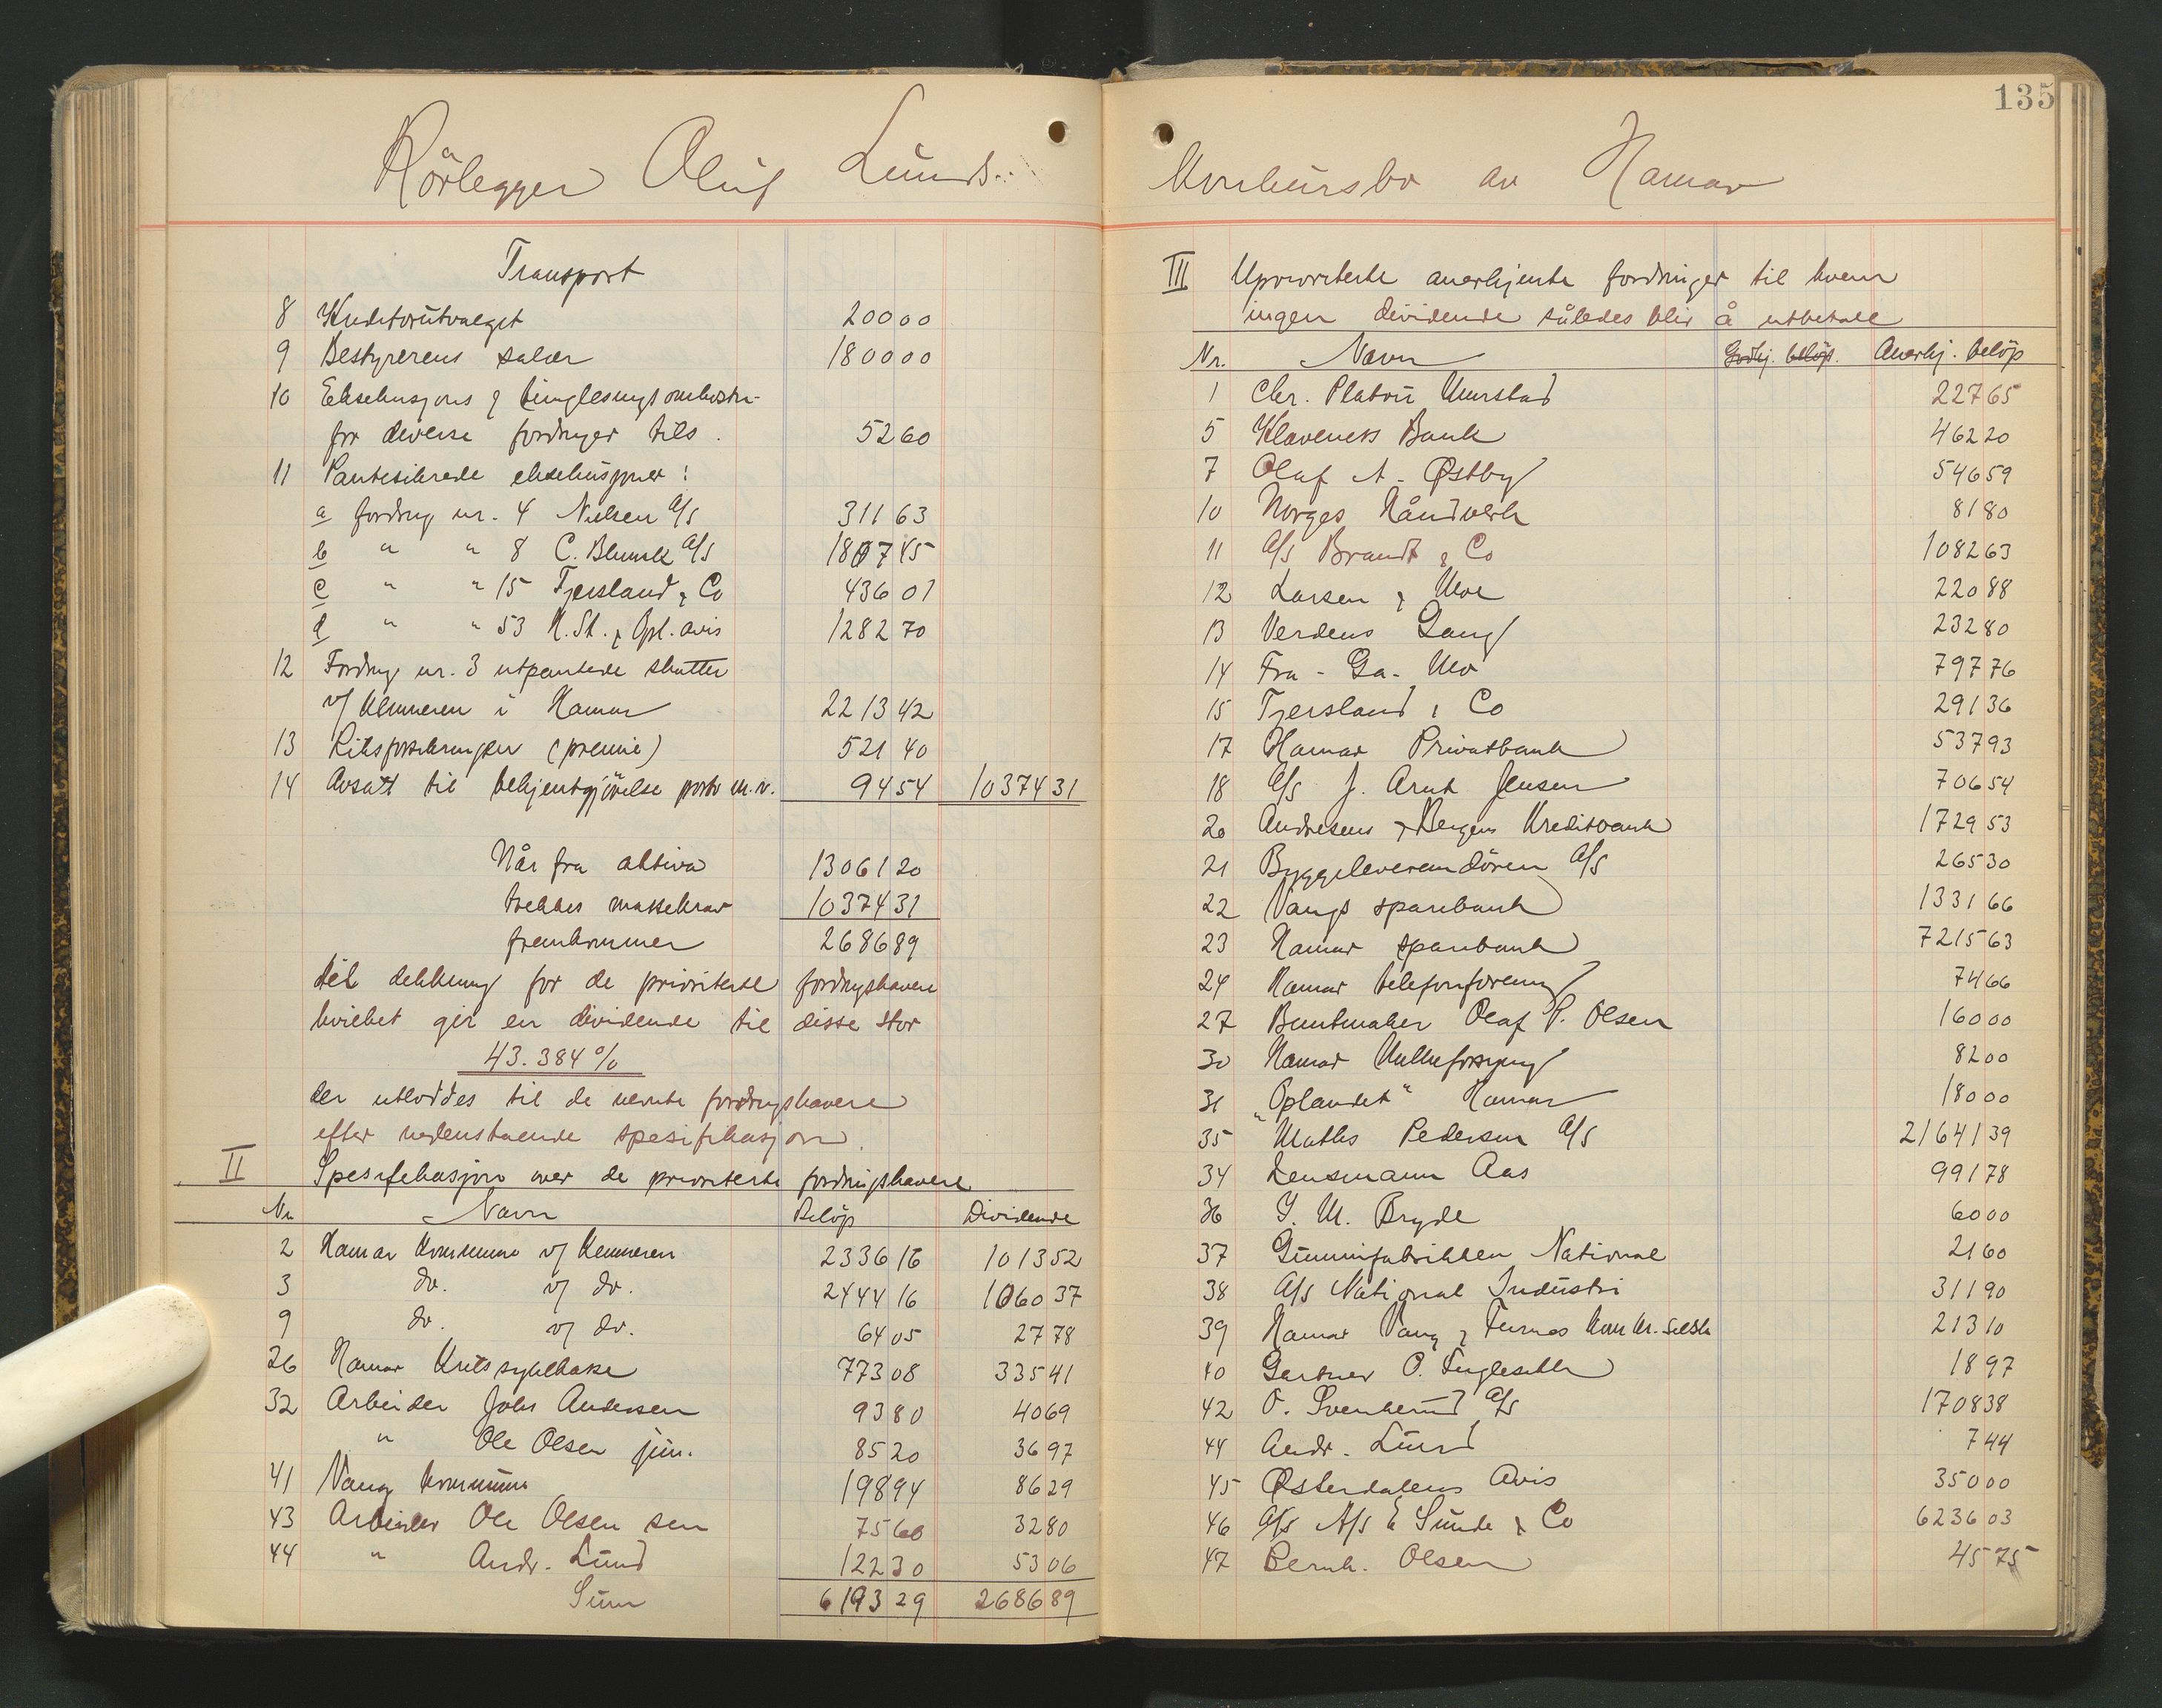 135
Rörlegger Oluf Lunds
Konkursbo av Hamar
Transport
8 Kreditorutvalget 200 00
9 Bestyrerens salær 1800 00
10 Eksekusjons & tinglesningsomkostn.
for diverse fordringer tils. 52 60
11 Pantesikrede eksekusjoner:
a fordring nr. 4 Nielsen A/S 311 63
b " " 8 C. Blunck A/S 1807 45
c " " 15 Tjersland & Co 436 01
d " " 53 H. St. & Opl. avis 1282 70
12 Fordring nr. 3 utpantede skatter
v/ Kemneren i Hamar 2213 42
13 Livsforsikringer (premie) 521 40
14 Avsatt til bekjentgjörelse porto m.v. 94 54 10374 31
Når fra aktiva 13061 20
trekkes massekrav 10374 31
fremkommer 2686 89
til dekkning for de prioriterte fordringshavere
hvilket gir en dividende til disse stor
43.384 %
der utloddes til de nevnte fordringshavere
efter nedenstaaende spesifikasjon.
II Spesifikasjon over de prioriterte fordringshavere
Nr Navn Belöp Dividende
2 Hamar kommune v/ Kemneren 2336 16 1013 52
3 do. v/ do. 2444 16 1060 37
9 do. v/ do. 64 05 27 78
26 Hamar Kretssykekasse 773 08 335 41
32 Arbeider Johs Andersen 93 80 40 69
" Ole Olsen jun. 85 20 36 97
41 Vang kommune 198 94 86 29
43 Arbeider Ole Olsen sen 75 60 32 80
44 " Andr. Lund 122 30 53 06
Sum 6193 29 2686 89
III Uprioriterte anerkjente fordringer til hvem
ingen dividende således blir å utbetale
Nr. Navn Godkj. belöp. Anerkj. belöp
1 Chr. Platou 227 65
5 Klaveness Bank 462 20
7 Olaf A. Østby 546 59
10 Norges Håndverk 81 80
11 A/S Brandt & Co 1082 63
12 Larsen & Moe 220 88
13 Verdens Gang 232 80
14 Fra-Ga-Mo 797 76
15 Tjersland & Co 291 36
17 Hamar Privatbank 537 93
18 A/S J. Arnt Jensen 706 54
20 Andresens & Bergens Kreditbank 1729 53
21 Byggeleverandören A/S 265 30
22 Vangs sparebank 1331 66
23 Hamar sparebank 7215 63
24 Hamar telefonforening 74 66
27 Buntmaker Olaf P. Olsen 160 00
30 Hamar 82 00
31 "Oplandet" Hamar 180 00
35 Maths Pedersen A/S 21641 39
34 Lensmann Aas 991 78
36 J. M. Bryde 60 00
37 Gummifabrikken National 21 60
38 A/S National Industri 311 90
39 Hamar Vang & Furnes 213 10
40 Gartner O. 18 97
42 O. Svenkerud A/S 1708 38
44 Andr. Lund 7 44
45 Østerdalens Avis 350 00
46 A/S A/S E Sunde & Co 6236 03
47 Bernh. Olsen 45 75